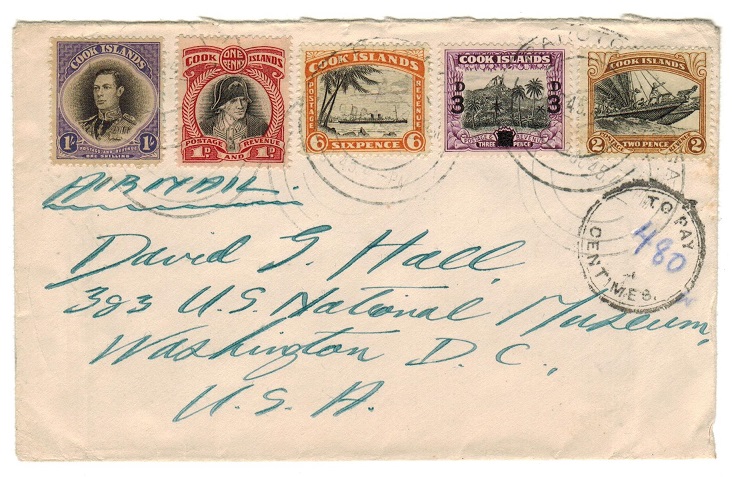 COOK ISLANDS
1/- 1/-
POSTAGE AND REVENUE
ONE SHILLING
COOK ONE PENNY ISLANDS
POSTAGE REVENUE
1D AND 1D
COOK ISLANDS
POSTAGE REVENUE
6 SIXPENCE 6
COOK ISLANDS
3D 3D
POSTAGE & REVENUE
THREE PENCE
COOK ISLANDS
2 TWO PENCE 2
AIR MAIL.
TO PAY
480
CENTIMES.
David G. Hall,
383 U.S. National Museum,
Washington D.C.,
U.S.A.